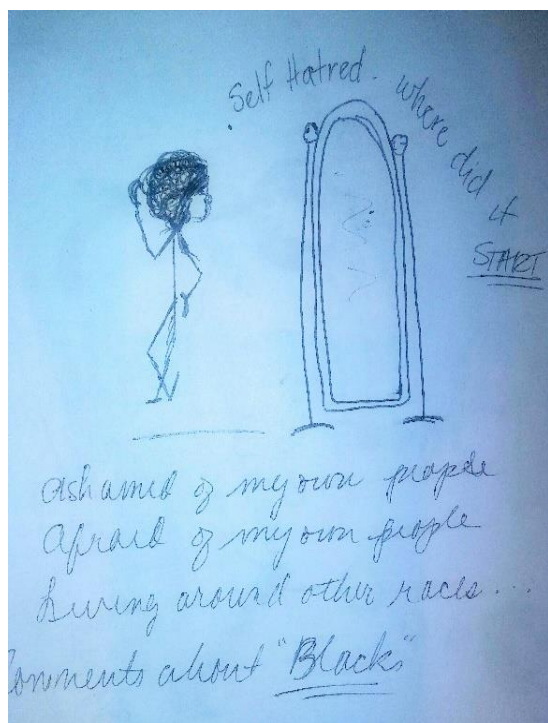 Self Hatred. where did it
START
Ashamed of my own people
Afraid of my own people
Living around other races...
Comments about "Blacks"